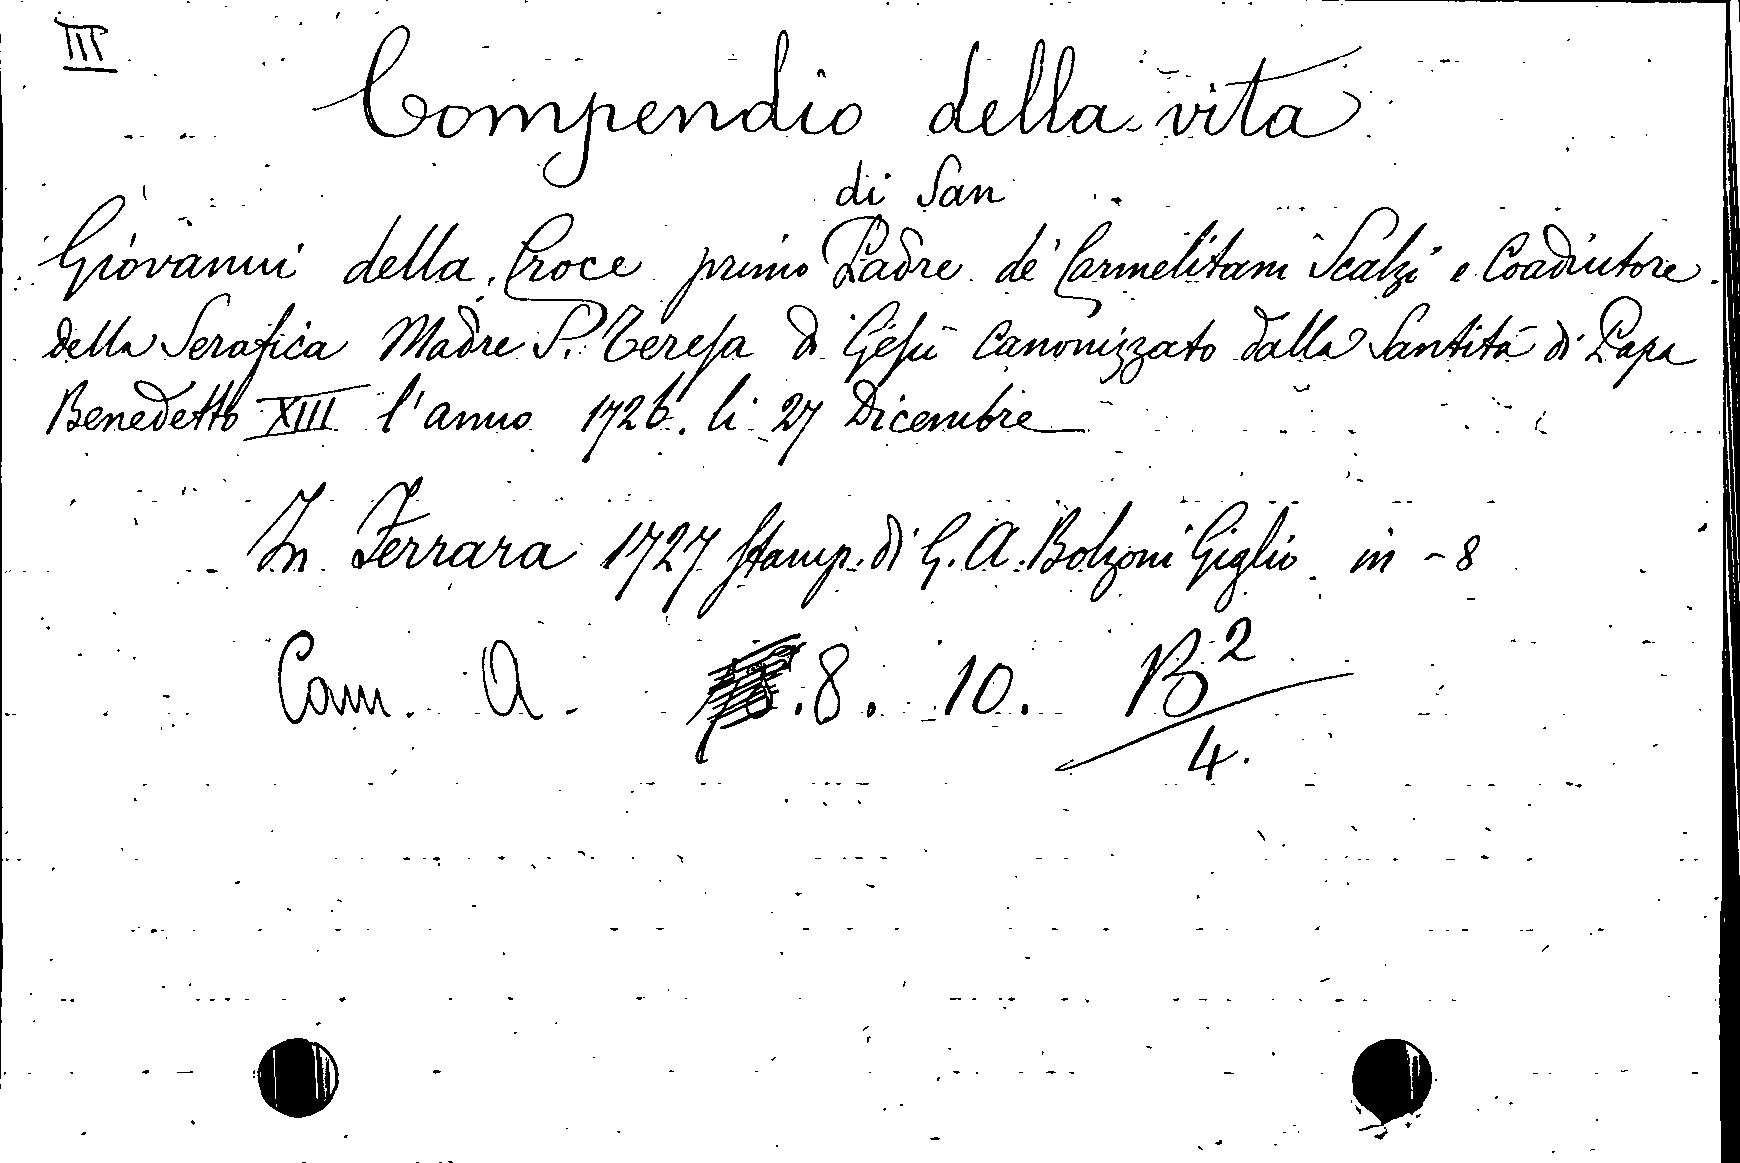 III
Compendio della vita
di San
Giovanni della Croce primo Padre de' Carmelitani Scalzi e Coadiutore
della Serafica Madre S. Teresa di Gesù canonizzato dalla Santità di Papa
Benedetto XIII l'anno 1726. li 27 Dicembre
In Ferrara 1727 Stamp. di G. A. Bolzoni Giglio in - 8
Cam. A. .8. 10. B²
4.